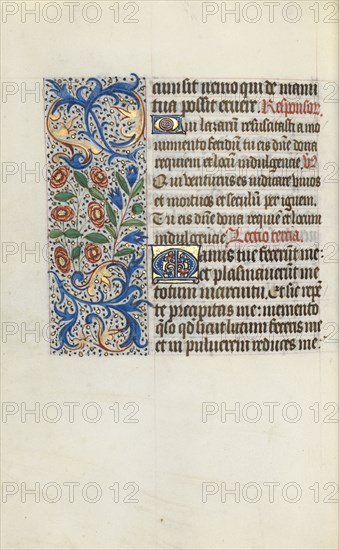 PHOTO 12 PHOTO 12 PHOTO 12
cum sit nemo qui de manu
tua possit eruere. Responsor.
Qui lazarum resuscitasti a mo
numento fetidum tu eis dñe dona
requiem et locũ indulgencie. V̷
Qui venturus es iudicare viuos
et mortuos et seculum per ignem.
Tu eis dñe dona requiē et locum
indulgencie. Lectio tercia.
Manus tue fecerunt me
et plasmauerunt me
totum in circuitu. Et sic repẽ
te precipitas me: memento
queso qd sicut lutum feceris me
et in puluerem reduces me:
PHOTO 12 PHOTO 12 PHOTO 12